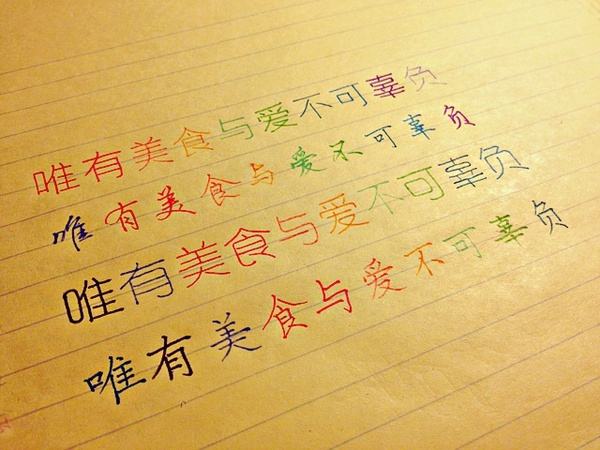 唯有美食与爱不可辜负
唯有美食与爱不可辜负
唯有美食与爱不可辜负
唯有美食与爱不可辜负